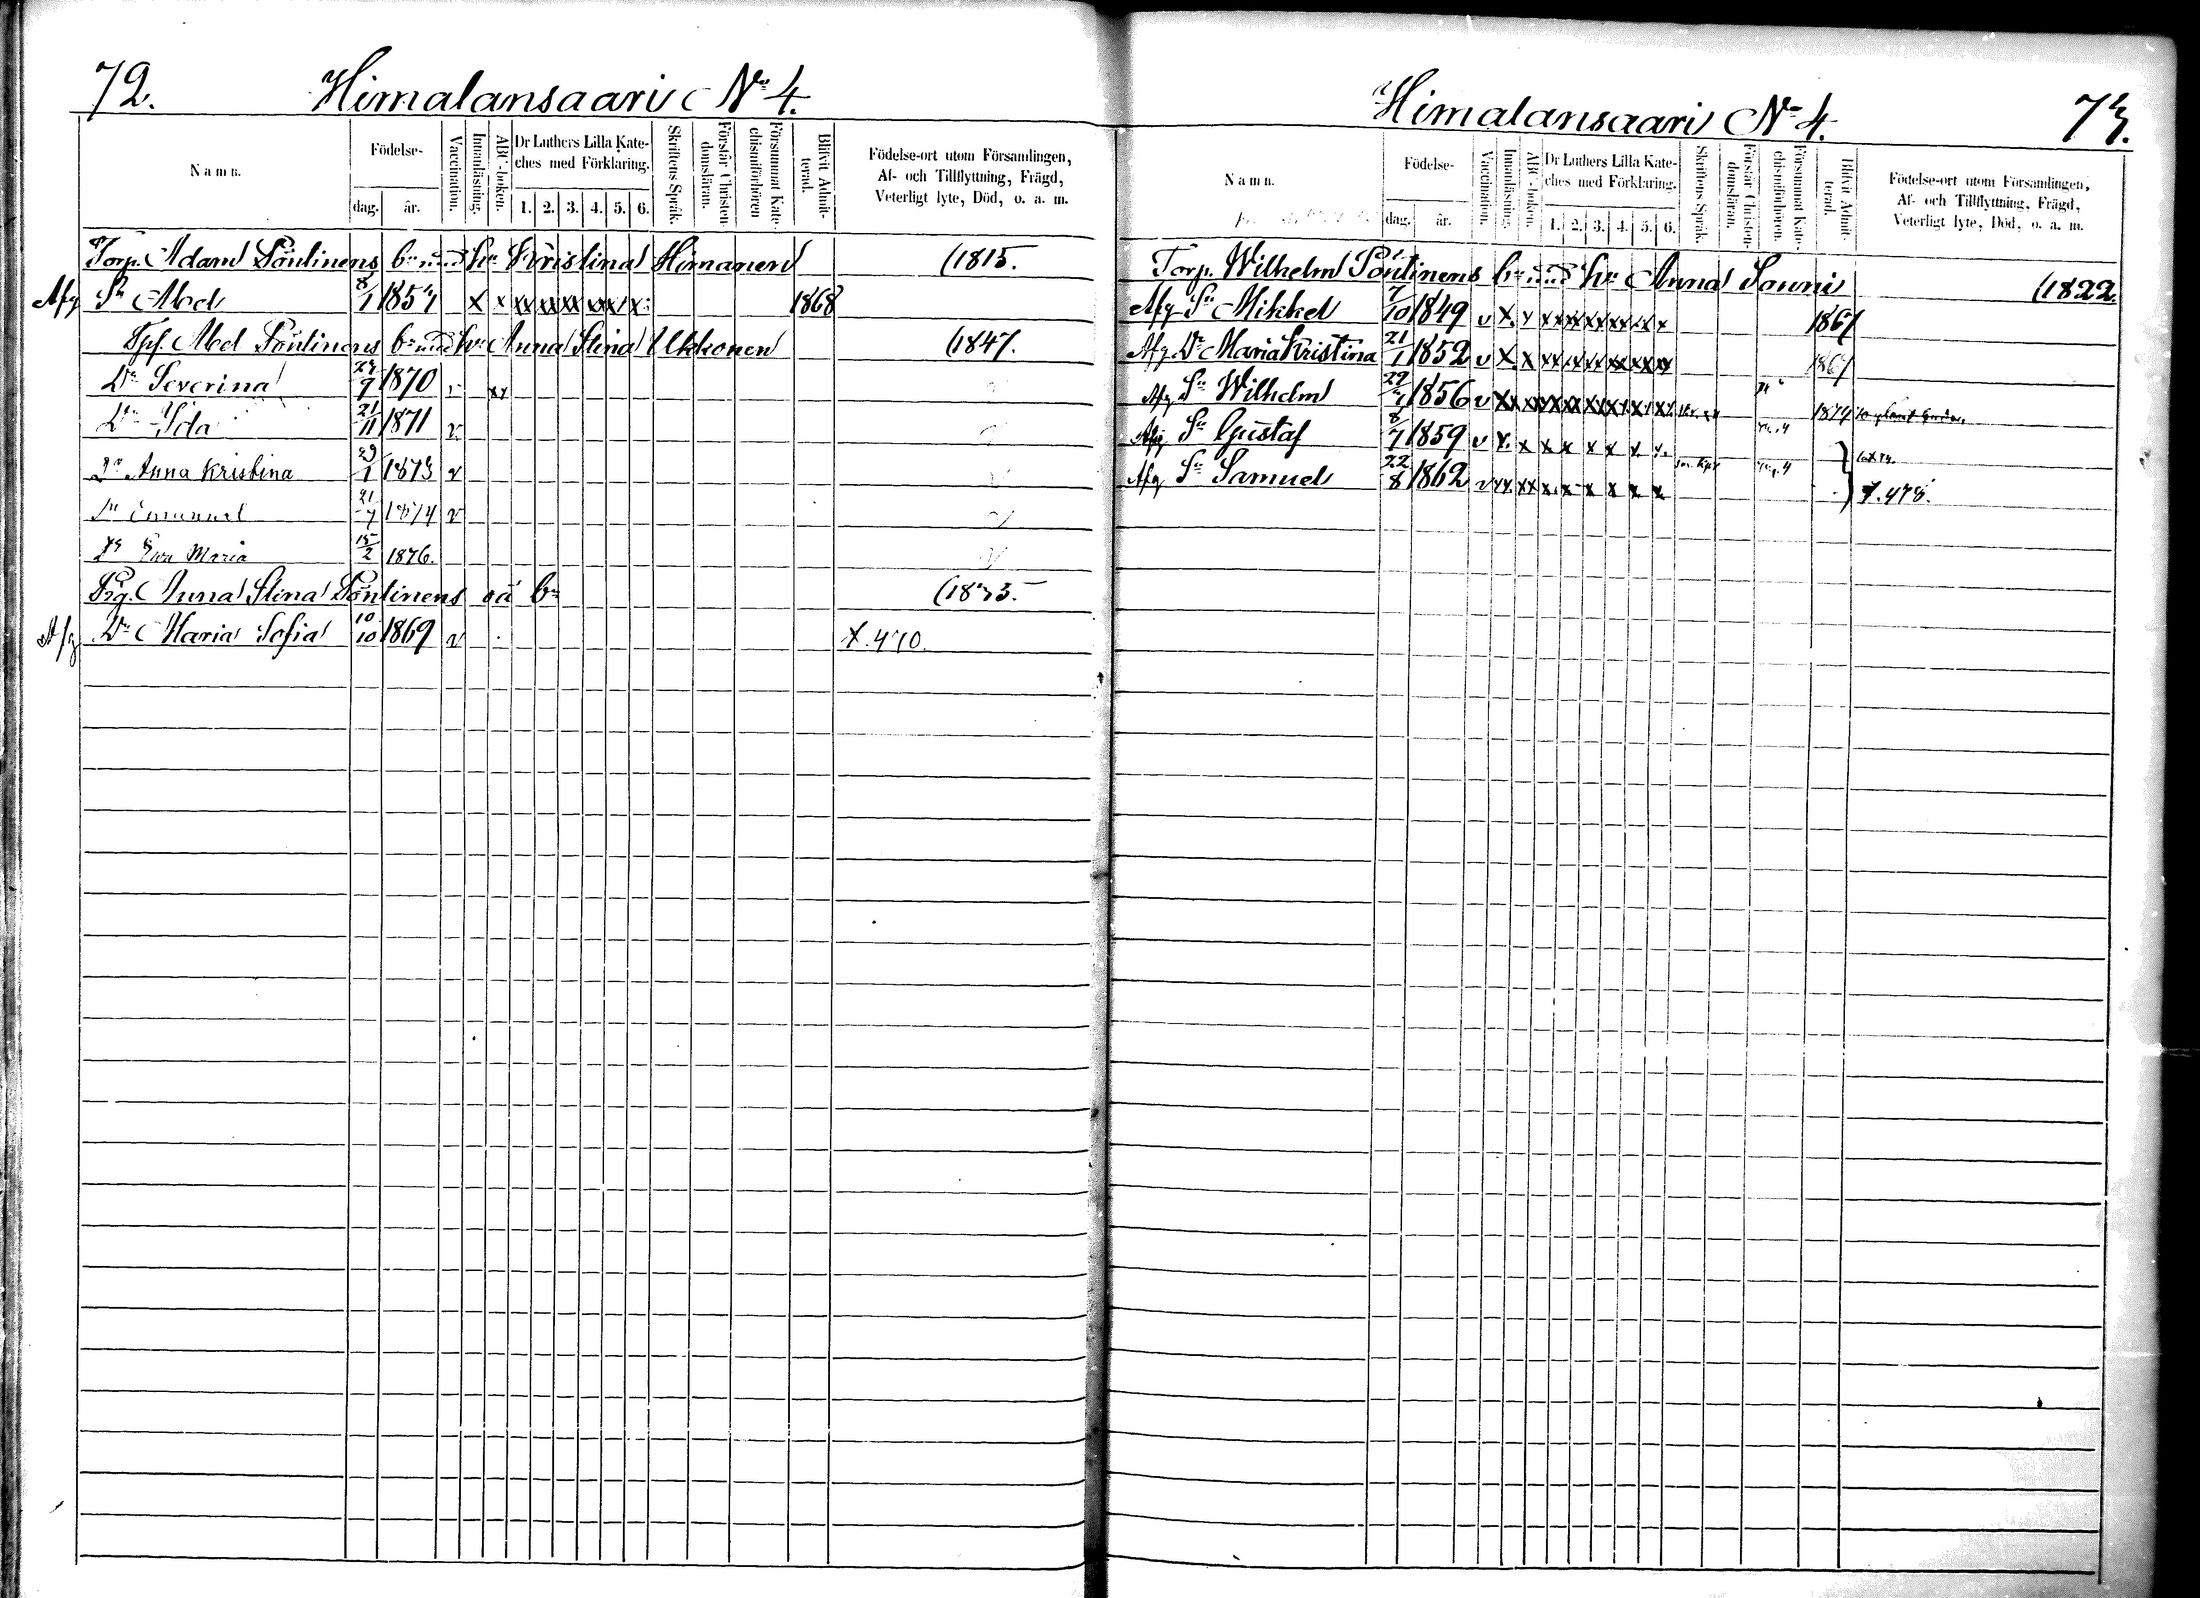 72. Himalansaari No 4.
Namn.
Födelse-
dag. år.
Vaccination.
Innanläsning.
ABC-boken.
Dr Luthers Lilla Kate-
ches med Förklaring.
1. 2. 3. 4. 5. 6.
Skriftens Språk.
Förstår Christen-
domsläran.
Försummat Kate-
chismiförhören
Blifvit Admit-
terad.
Födelse-ort utom Församlingen,
Af- och Tillflyttning, Frägd,
Veterligt lyte, Död, o. a. m.
Torp. Adam Pöntinens bn med hu Kristina Himanen (1815.
Afg Sn Abel 8/1 1851 x x xx xx xx xx x x 1868
Tpf. Abel Pöntinens bn med hu Anna Stina Ukkonen (1847.
Dr Severina 1870 v xx
Dr Ida 21/11 1871 v
Dr Anna Kristina 29/1 1873 v
Sn Emanuel 21/7 1874 v
Dr Ewa Maria 15/2 1876.
Pig. Anna Stina Pöntinens oä bn
Afg Dr Maria Sofia 10/10 1869 v X.470.
Himalansaari No 4. 73.
Namn.
Födelse-
dag. år.
Vaccination.
Innanläsning.
ABC-boken.
Dr Luthers Lilla Kate-
ches med Förklaring.
1. 2. 3. 4. 5. 6.
Skriftens Språk.
Förstår Christen-
domsläran.
Försummat Kate-
chismiförhören.
Blifvit Admit-
terad.
Födelse-ort utom Församlingen,
Af- och Tillflyttning, Frägd,
Veterligt lyte, Död, o. a. m.
Torp. Wilhelm Pöntinens bn med hu Anna Louni (1822.
Afg Sn Mikkel 7/10 1849 v x x xx xx xx xx xx x 1867
Afg Dr Maria Kristina 21/1 1852 v x x xx xx xx xx xx xx 1867
Afg Sn Wilhelm 1856 v xx xx xx xx xx xx xx 1874
Afg Sn Gustaf 8/7 1859 v x. x x x x x x x.
Afg Sn Samuel 22/8 1862 v xx xx x x x x x x X.478.